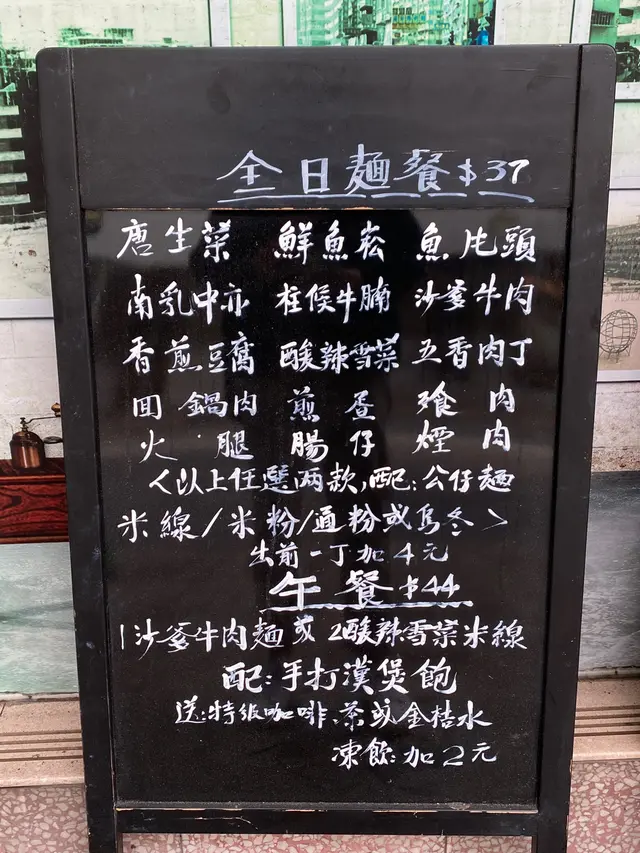 全日麵餐$37
唐生菜 鮮魚崧 魚片頭
南乳中亦 柱候牛腩 沙爹牛肉
香煎豆腐 酸辣雪菜 五香肉丁
回鍋肉 煎蛋 餐肉
火腿 腸仔 煙肉
<以上任選两款,配:公仔麵
米線/米粉/通粉或烏冬>
出前一丁加4元
午餐$44
1沙爹牛肉麵 或 2酸辣雪菜米線
配:手打漢煲飽
送:特級咖啡、茶或金桔水
凍飲:加2元